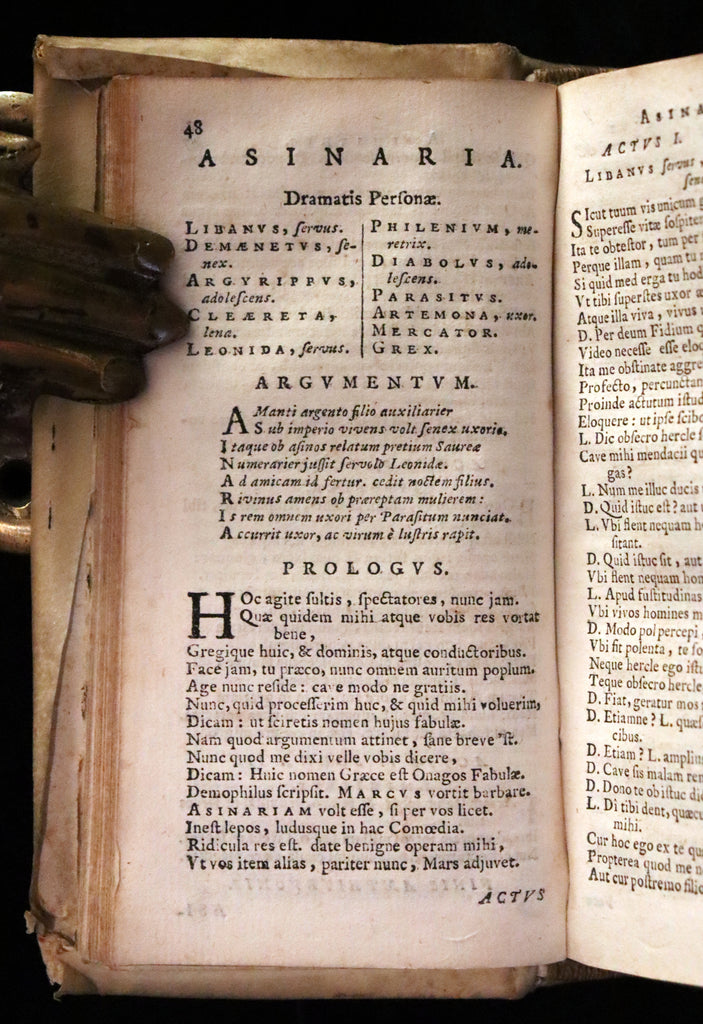 48
ASINARIA.
Dramatis Perſonæ.
LIBANVS, ſervus.
DEMÆNETVS, ſe-
nex.
ARGYRIPPVS,
adoleſcens.
CLEÆRETA,
lena.
LEONIDA, ſervus.
PHILENIVM, me-
retrix.
DIABOLVS, ado-
leſcens.
PARASITVS.
ARTEMONA, uxor.
MERCATOR.
GREX.
ARGVMENTVM.
AManti argento filio auxiliarier
Sub imperio vivens volt ſenex uxoris.
Itaque ob aſinos relatum pretium Saureæ
Numerarier juſſit ſervolo Leonidæ.
Ad amicam id fertur. cedit noctem filius.
Rivinus amens ob præreptam mulierem:
Is rem omnem uxori per Paraſitum nunciat.
Accurrit uxor, ac virum è luſtris rapit.
PROLOGVS.
HOc agite ſultis, ſpectatores, nunc jam.
Quæ quidem mihi atque vobis res vortat
bene,
Gregique huic, & dominis, atque conductoribus.
Face jam, tu præco, nunc omnem auritum poplum.
Age nunc reſide: cave modo ne gratiis.
Nunc, quid proceſſerim huc, & quid mihi voluerim,
Dicam: ut ſciretis nomen hujus fabulæ.
Nam quod argumentum attinet, ſane breve 'ſt.
Nunc quod me dixi velle vobis dicere,
Dicam: Huic nomen Græce eſt Onagos Fabulæ.
Demophilus ſcripſit. MARCVS vortit barbare.
ASINARIAM volt eſſe, ſi per vos licet.
Ineſt lepos, ludusque in hac Comœdia.
Ridicula res eſt. date benigne operam mihi,
Vt vos item alias, pariter nunc, Mars adjuvet.
ACTVS
ASINA
ACTVS I.
LIBANVS ſervus
SIcut tuum vis unicum
Supereſſe vitæ ſoſpite
Ita te obteſtor, tum per
Perque illam, quam tu
Si quid med erga tu hod
Vt tibi ſuperſtes uxor æ
Atque illa viva, vivus
D. Per deum Fidium q
Video neceſſe eſſe eloc
Ita me obſtinate aggre
Profecto, percunctan
Proinde actutum iſtud
Eloquere: ut ipſe ſcibo
L. Dic obſecro hercle ſ
Cave mihi mendacii qu
gas?
L. Num me illuc ducis
D. Quid iſtuc eſt? aut u
L. Vbi flent nequam h
ſitant.
D. Quid iſtuc ſit, aut
Vbi flent nequam hom
L. Apud fuſtitudinas
Vbi vivos homines m
D. Modo pol percepi,
Vbi fit polenta, te fo
Neque hercle ego iſtu
Teque obſecro hercle
D. Fiat, geratur mos
D. Etiamne? L. quæſ
cibus.
D. Etiam? L. ampliu
D. Cave ſis malam rem
D. Dono te ob iſtuc di
L. Di tibi dent, quæcu
mihi.
Cur hoc ego ex te qu
Propterea quod me n
Aut cur poſtremo filio